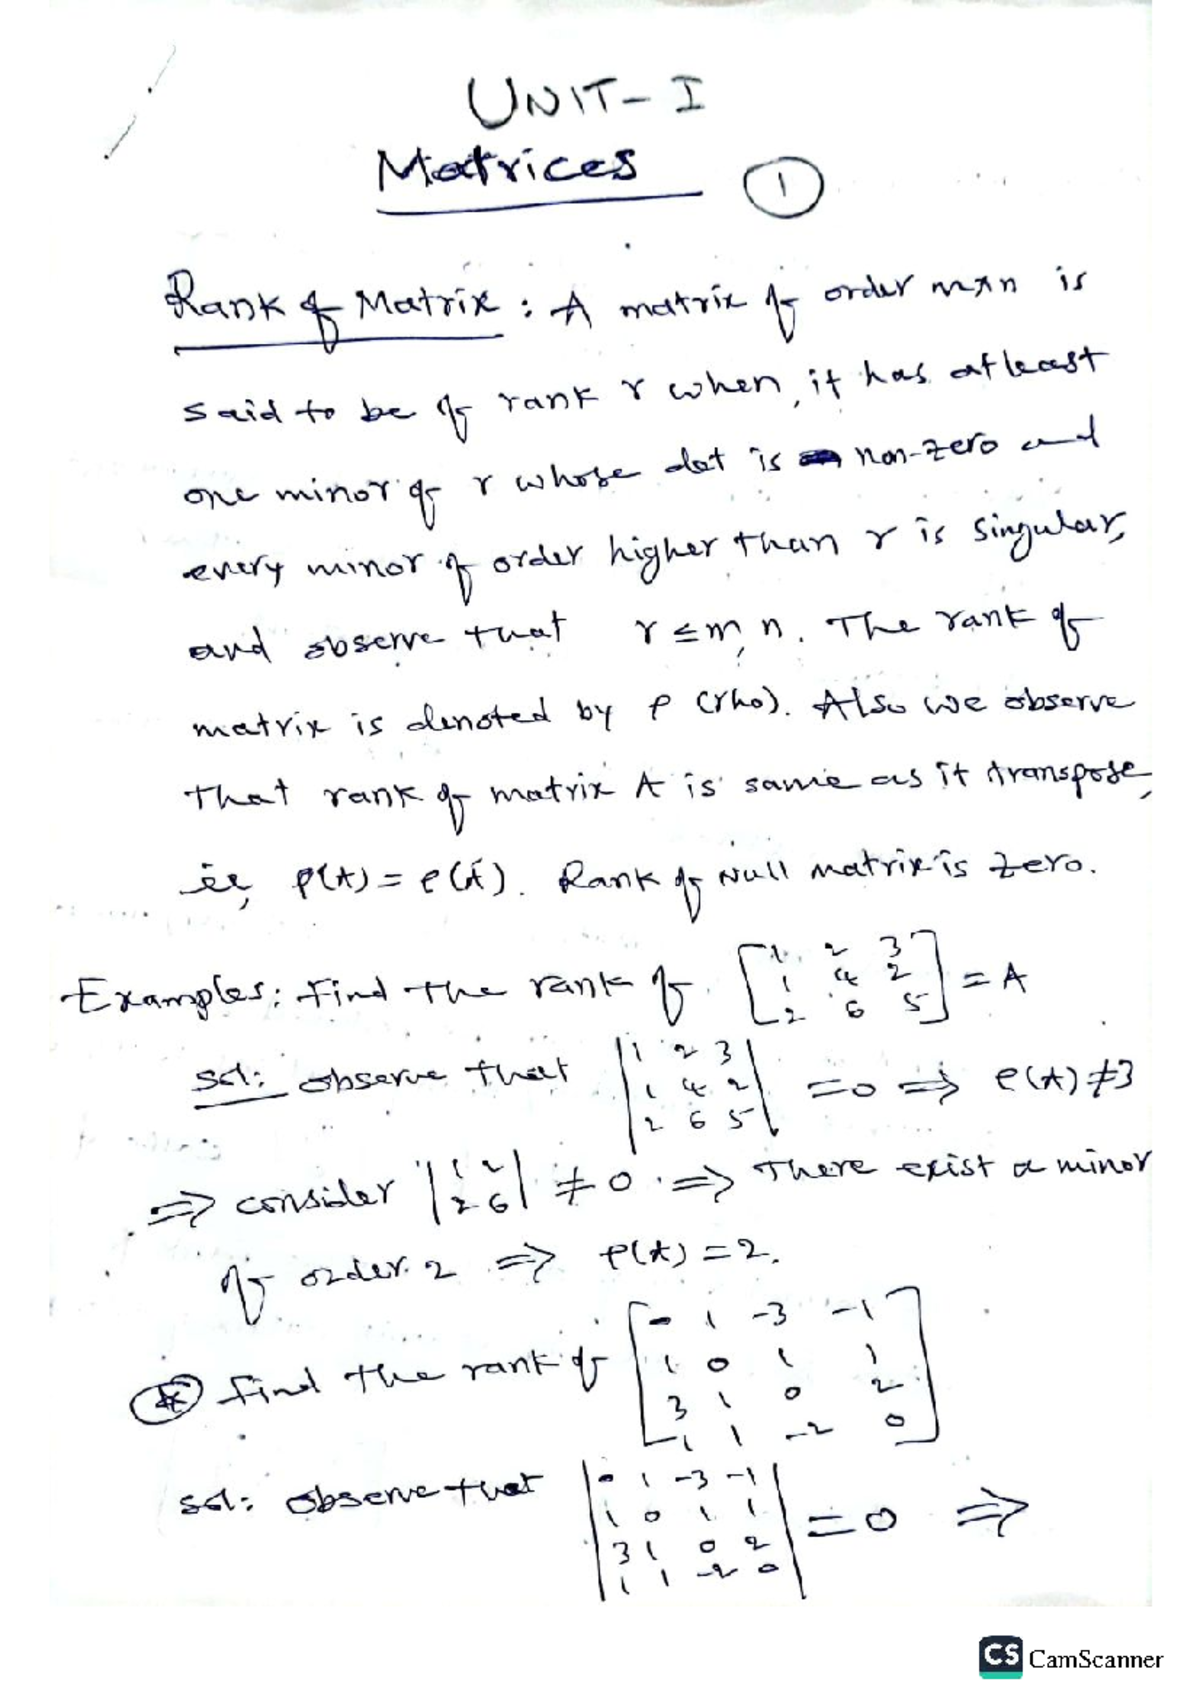 UNIT-I
Matrices
1
Rank of Matrix : A matrix of order m×n is
said to be of rank r when, it has atleast
one minor of r whose det is non-zero and
every minor of order higher than r is singular,
and observe that r ≤ m, n. The rank of
matrix is denoted by ρ (rho). Also we observe
that rank of matrix A is same as it transpose,
ie, ρ(A) = ρ(A'). Rank of Null matrix is zero.
Examples: Find the rank of [1 2 3
1 4 2
2 6 5] = A
Sol: observe that |1 2 3
1 4 2
2 6 5| = 0 ⇒ ρ(A) ≠ 3
⇒ consider |1 2
2 6| ≠ 0 ⇒ There exist a minor
of order 2 ⇒ ρ(A) = 2.
* find the rank of [1 -3 -1
1 0 1 1
3 1 0 2
1 1 -2 0]
Sol: observe that |1 -3 -1
1 0 1 1
3 1 0 2
1 1 -2 0| = 0 ⇒
CS CamScanner